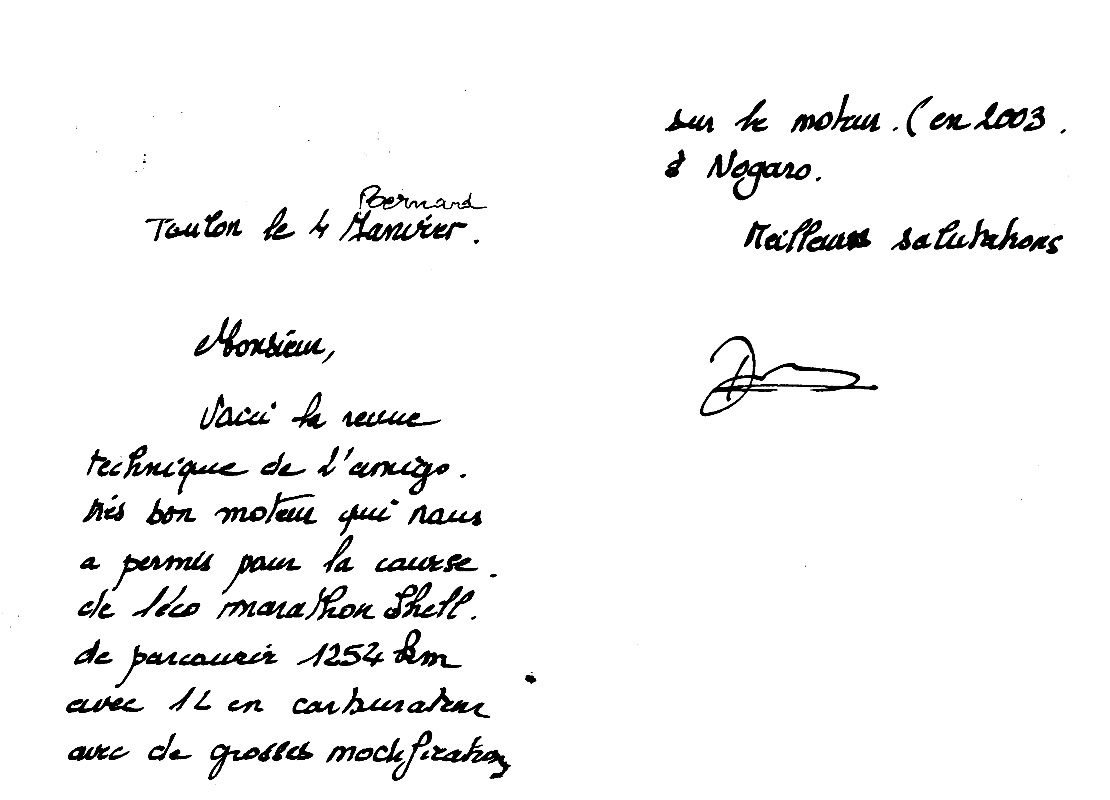 Bernard
Toulon le 4 Janvier.
Monsieur,
Voici la revue
technique de L'amigo.
très bon moteur qui nous
a permis pour la course.
de l'éco marathon Shell.
de parcourir 1254 km
avec 1L en carburateur
avec de grosses modifications
sur le moteur. (en 2003.
à Nogaro.
Meilleurs salutations